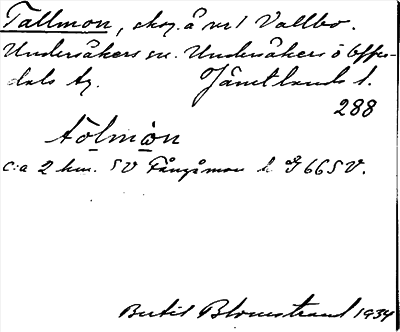 Tallmon, skog å nr 1 Vallbo.
Undersåkers sn. Undersåkers o Offer-
dals tg. Jämtlands l.
288
tólmòn
c:a 2 km. SV Fångåmon k G 66 SV.
Bertil Blomstrand 1934